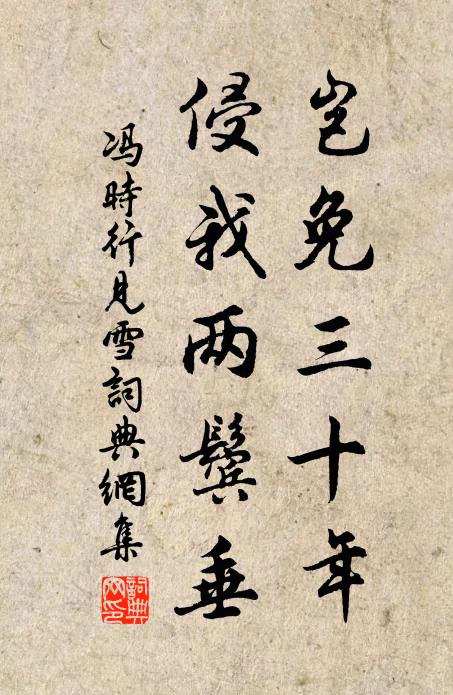 岂免三十年
侵我两鬓垂
冯時行見雪詞典網集
詞典
网印